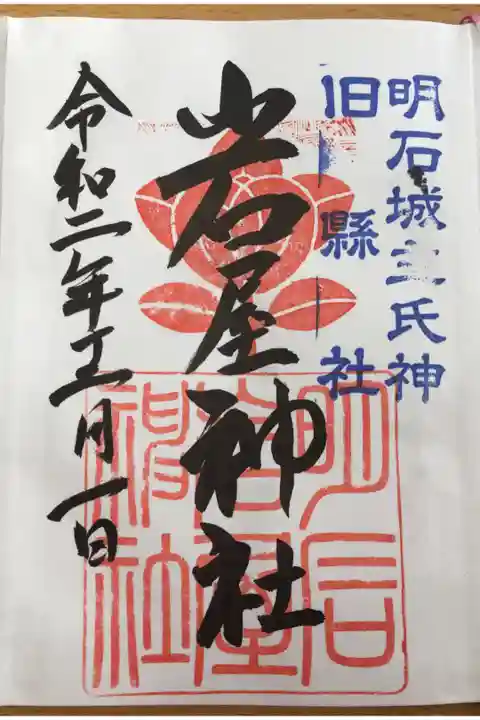 明石城主氏神
旧縣社
岩屋神社
令和二年 月一日
明石
岩屋
神社